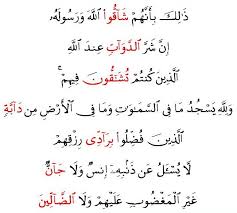 ذَٰلِكَ بِأَنَّهُمْ شَاقُّوا۟ ٱللَّهَ وَرَسُولَهُۥ
إِنَّ شَرَّ ٱلدَّوَآبِّ عِندَ ٱللَّهِ
ٱلَّذِينَ كُنتُمْ تُشَٰٓقُّونَ فِيهِمْ ۚ
وَلِلَّهِ يَسْجُدُ مَا فِى ٱلسَّمَٰوَٰتِ وَمَا فِى ٱلْأَرْضِ مِن دَآبَّةٍ
ٱلَّذِينَ فُضِّلُوا۟ بِرَآدِّى رِزْقِهِمْ
لَّا يُسْـَٔلُ عَن ذَنۢبِهِۦٓ إِنسٌ وَلَا جَآنٌّ
غَيْرِ ٱلْمَغْضُوبِ عَلَيْهِمْ وَلَا ٱلضَّآلِّينَ